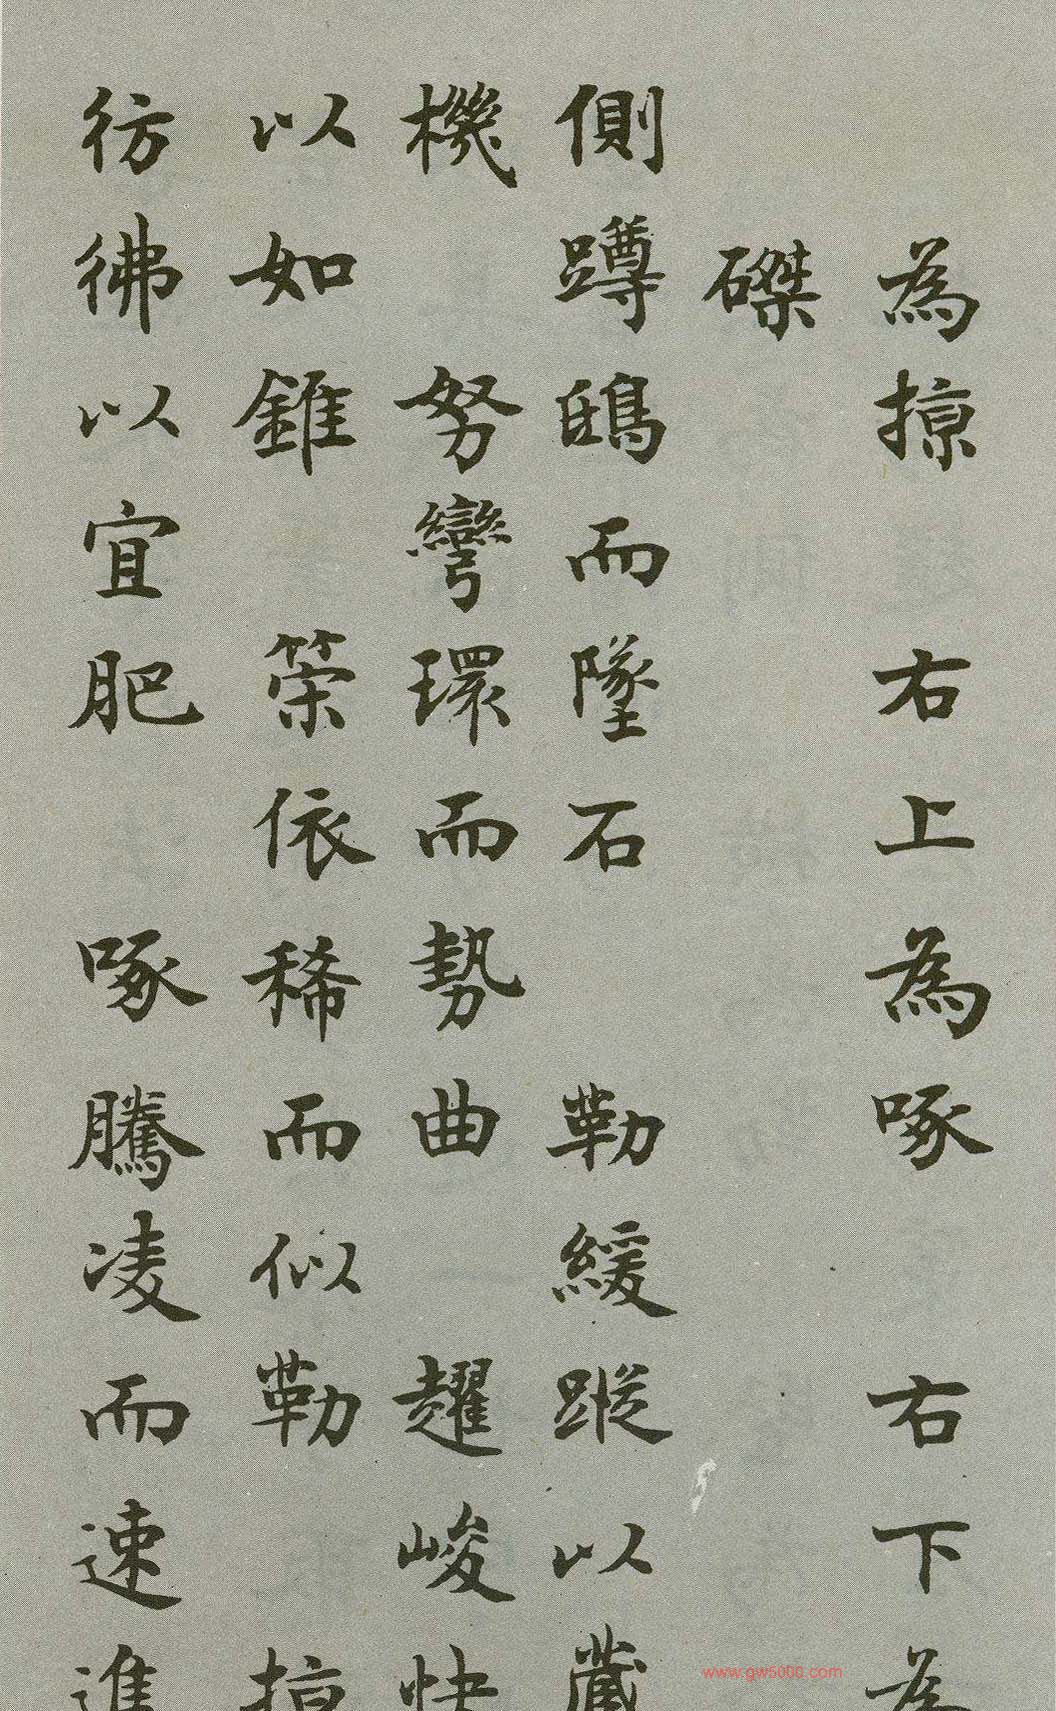 為掠 右上為啄 右下為
磔
側蹲鴟而墜石 勒緩蹤以藏
機 努彎環而勢曲 趯峻快
以如錐 策依稀而似勒 掠
彷彿以宜肥 啄騰凌而速進
www.gw5000.com